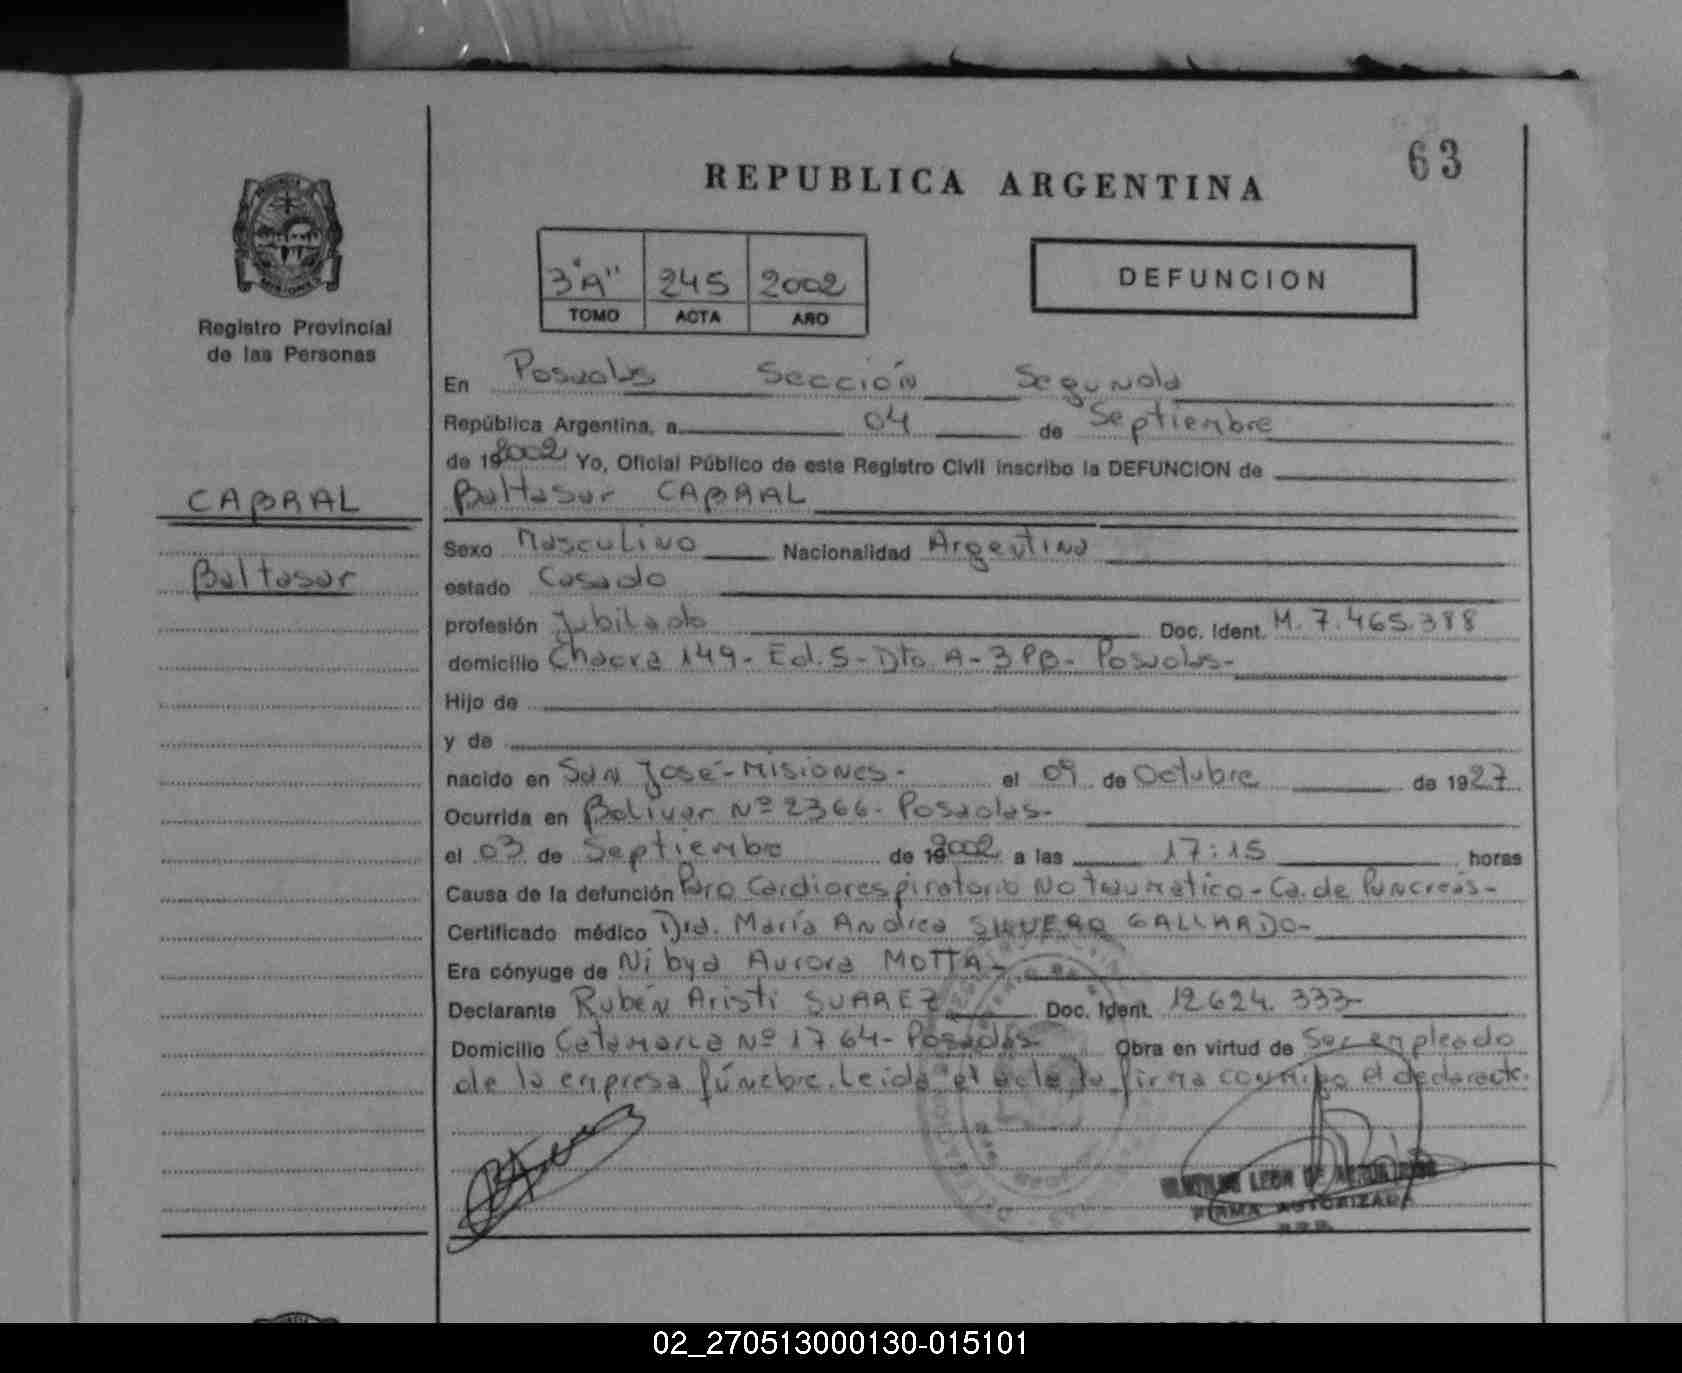 63
REPUBLICA ARGENTINA
3"A" 245 2002
TOMO ACTA AÑO
DEFUNCION
MISIONES
Registro Provincial
de las Personas
CABRAL
Baltasar
En Posadas Sección Segunda
República Argentina, a 04 de Septiembre
de 192002 Yo, Oficial Público de este Registro Civil inscribo la DEFUNCION de
Baltasar CABRAL
Sexo Masculino Nacionalidad Argentina
estado Casado
profesión Jubilado Doc. Ident. M. 7.465.388
domicilio Chacra 149- Ed. 5- Dto. A- 3 PB- Posadas-
Hijo de
y de
nacido en San José-Misiones- el 09 de Octubre de 1927
Ocurrida en Bolivar Nº 2366- Posadas-
el 03 de Septiembre de 192002 a las 17:15 horas
Causa de la defunción Paro Cardiorespiratorio No traumatico- Ca. de Pancreas-
Certificado médico Dra. María Andrea GALLARDO-
Era cónyuge de Nibya Aurora MOTTA-
Declarante Rubén Aristi SUAREZ Doc. Ident. 12624.333-
Domicilio Catamarca Nº 1764- Posadas- Obra en virtud de Ser empleado
de la empresa fúnebre. Leida el acta la firma conmigo el declarante.
LEON DE
FIRMA AUTORIZADA
02_270513000130-015101